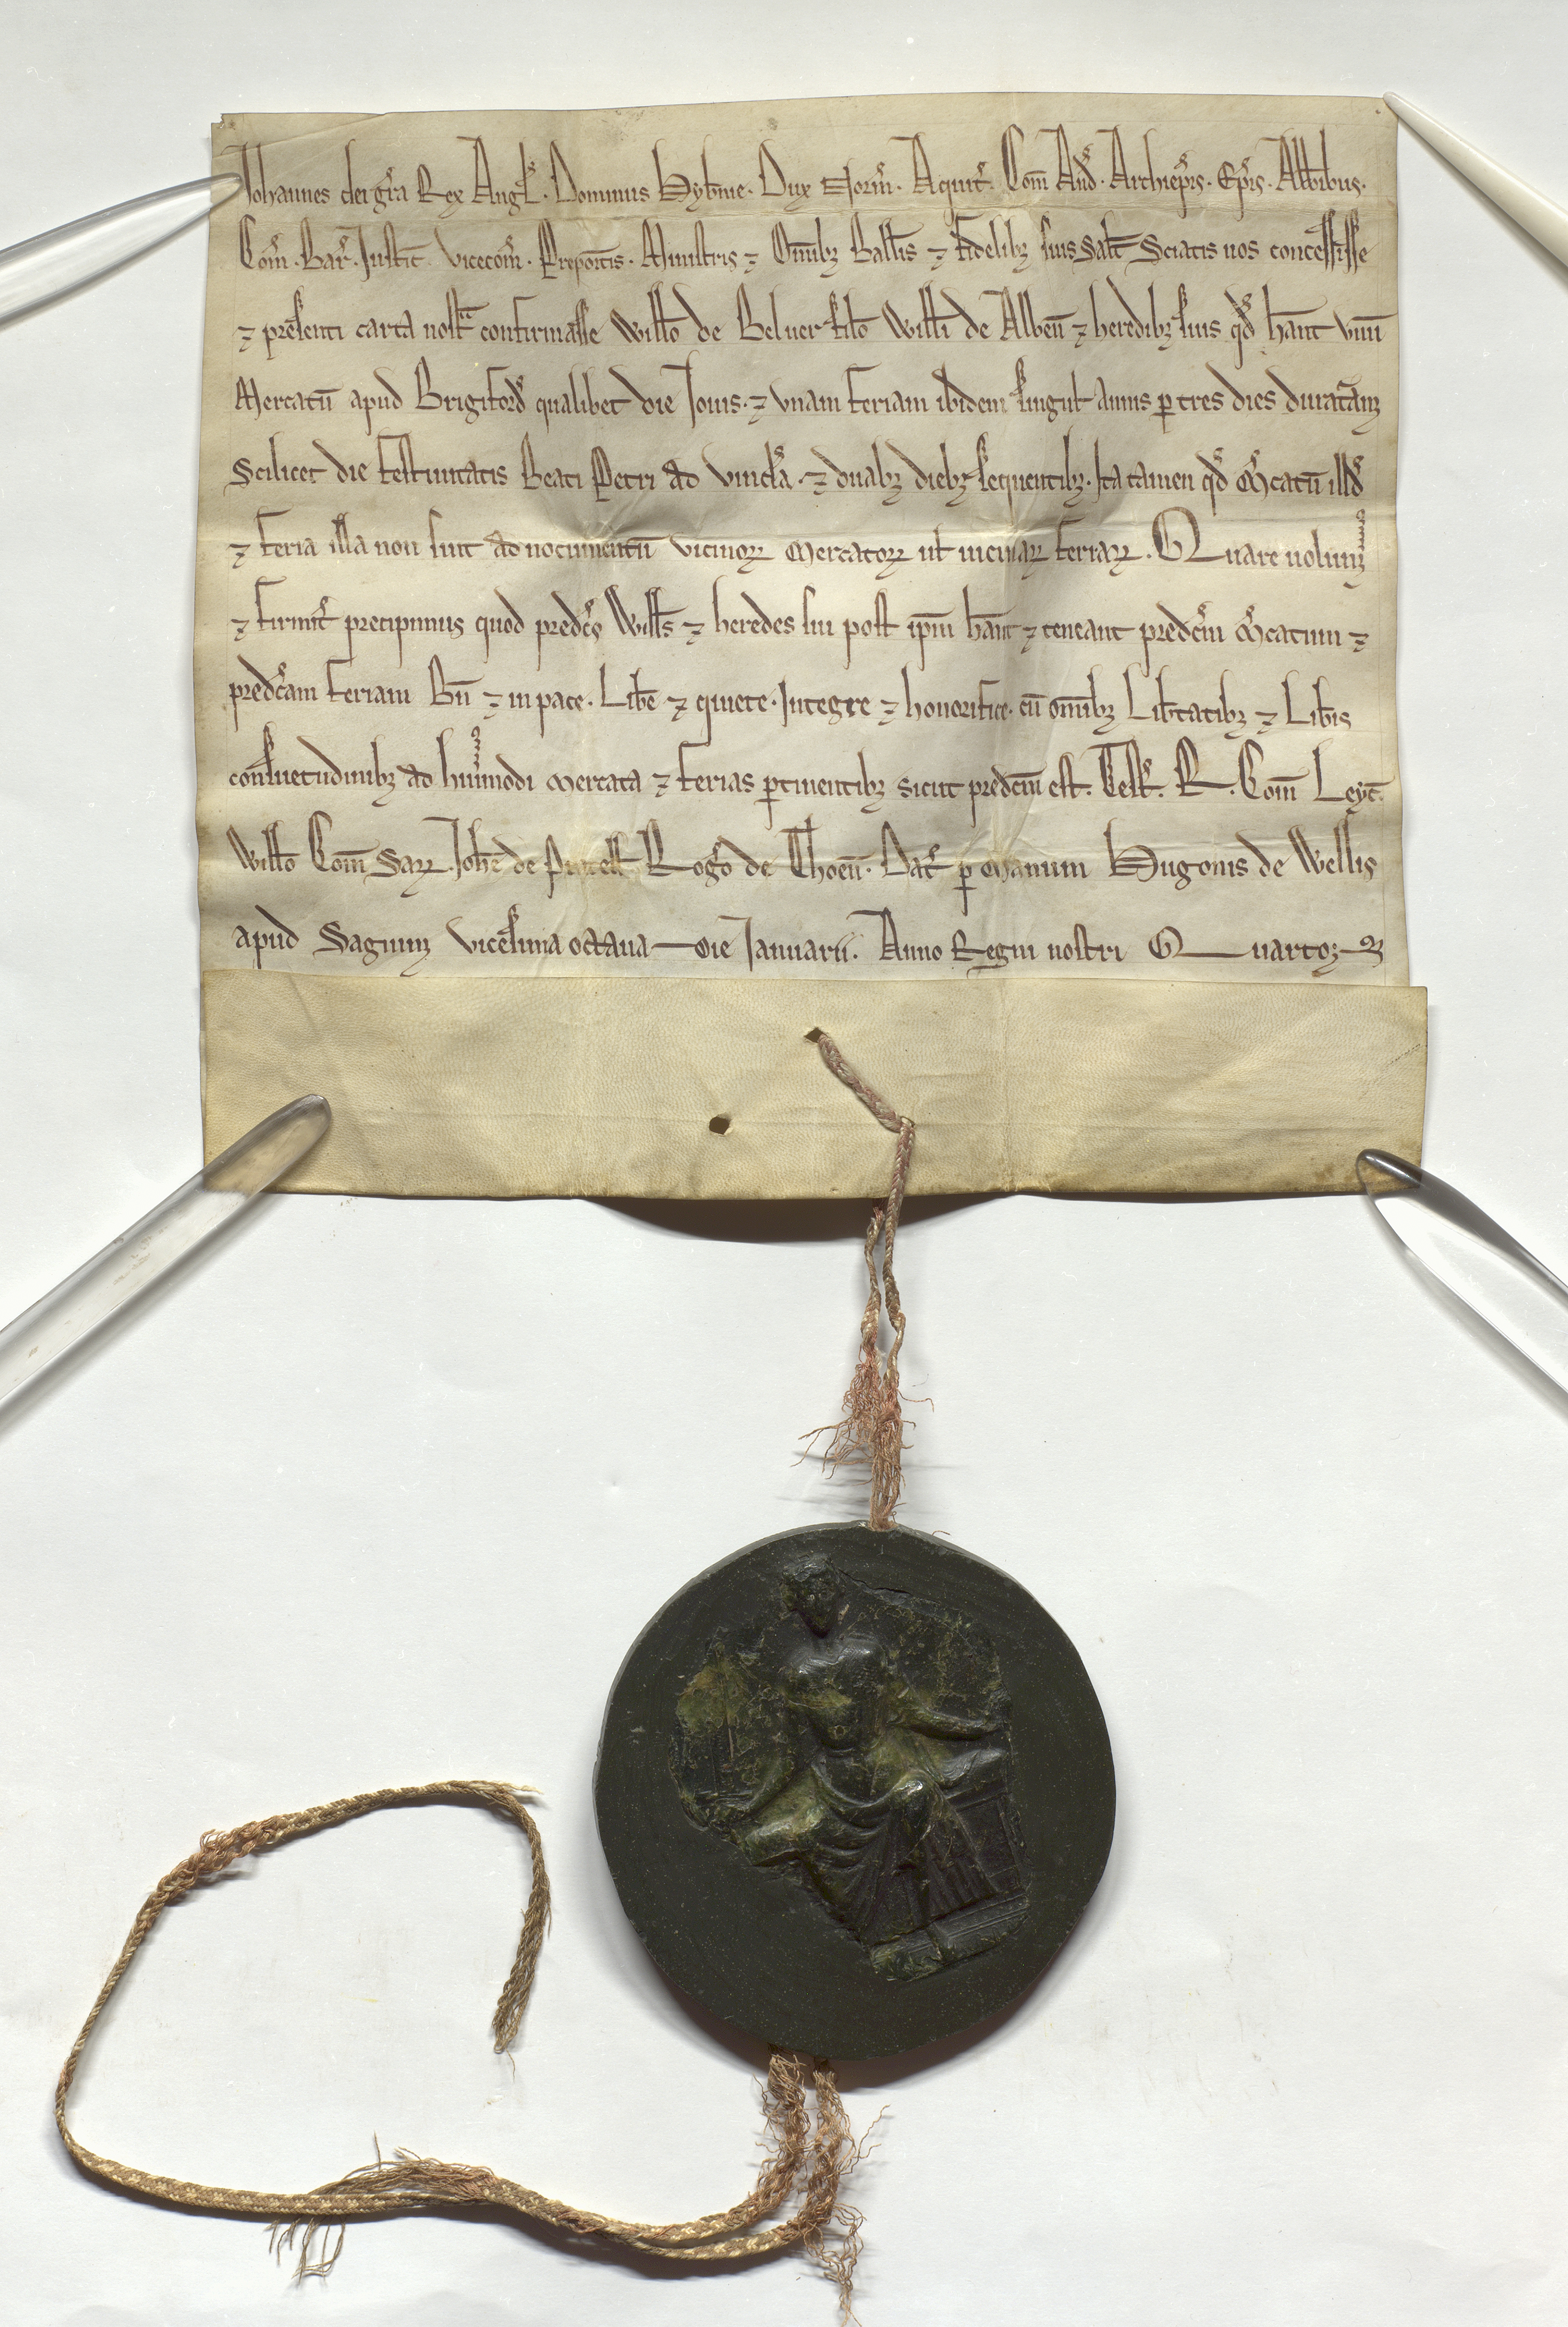 Johannes dei gr̄a Rex Angl̄. Dominus Hyb̄nie. Dux Norm̄. Aquit̄. Com̄ And̄. Archiep̄is. Ep̄is. Abb̄ibus.
Com̄. Bar̄. Justic̄. vicecom̄. Prepo᷒itis. Ministris ⁊ Om̄ibꝫ Ball̄is ⁊ fidelibꝫ suis Sal̄t Sciatis nos concessisse
⁊ presenti carta nost̄ confirmasse Will̄o de Beluer fil̄o Will̄i de Alben̄ ⁊ heredibꝫ suis qd̄ hān̄t vnū
Mercatū apud Brigiford̄ qualibet die Jouis. ⁊ vnam feriam ibidem singul̄ annis ꝑ tres dies duratāꝫ
Scilicet die festiuitatis Beati Petri ad vincl̄a. ⁊ duabꝫ diebꝫ sequentibꝫ. Ita tamen qd̄ M̄catū illd̄
⁊ feria illa non sint ad nocumentū vicinoꝝ Mercatoꝝ ut uicinaꝝ feriaꝝ. Quare uolumꝰ
⁊ firmit̄ precipimus quod predc̄s Will̄s ⁊ heredes sui post ip̄m hān̄t ⁊ teneant predc̄m M̄catum ⁊
predc̄am feriam Bn̄ ⁊ in pace. Lib̄e ⁊ quiete. Integre ⁊ honorifice. cū om̄ibꝫ Lib̄tatibꝫ ⁊ Lib̄is
consuetudinibꝫ ad huiꝰmodi Mercata ⁊ ferias ꝑtinentibꝫ sicut predc̄m est. Test̄. R. Com̄ Leyc̄.
Will̄o Com̄ Saꝝ. Joh̄e de Pratell̄ Rog̃o de Thoen̄. Dat̄ ꝑ Manum Hugonis de Wellis
apud Sagiumꝫ vicesima octaua die Januarii. Anno Regni nostri Quarto